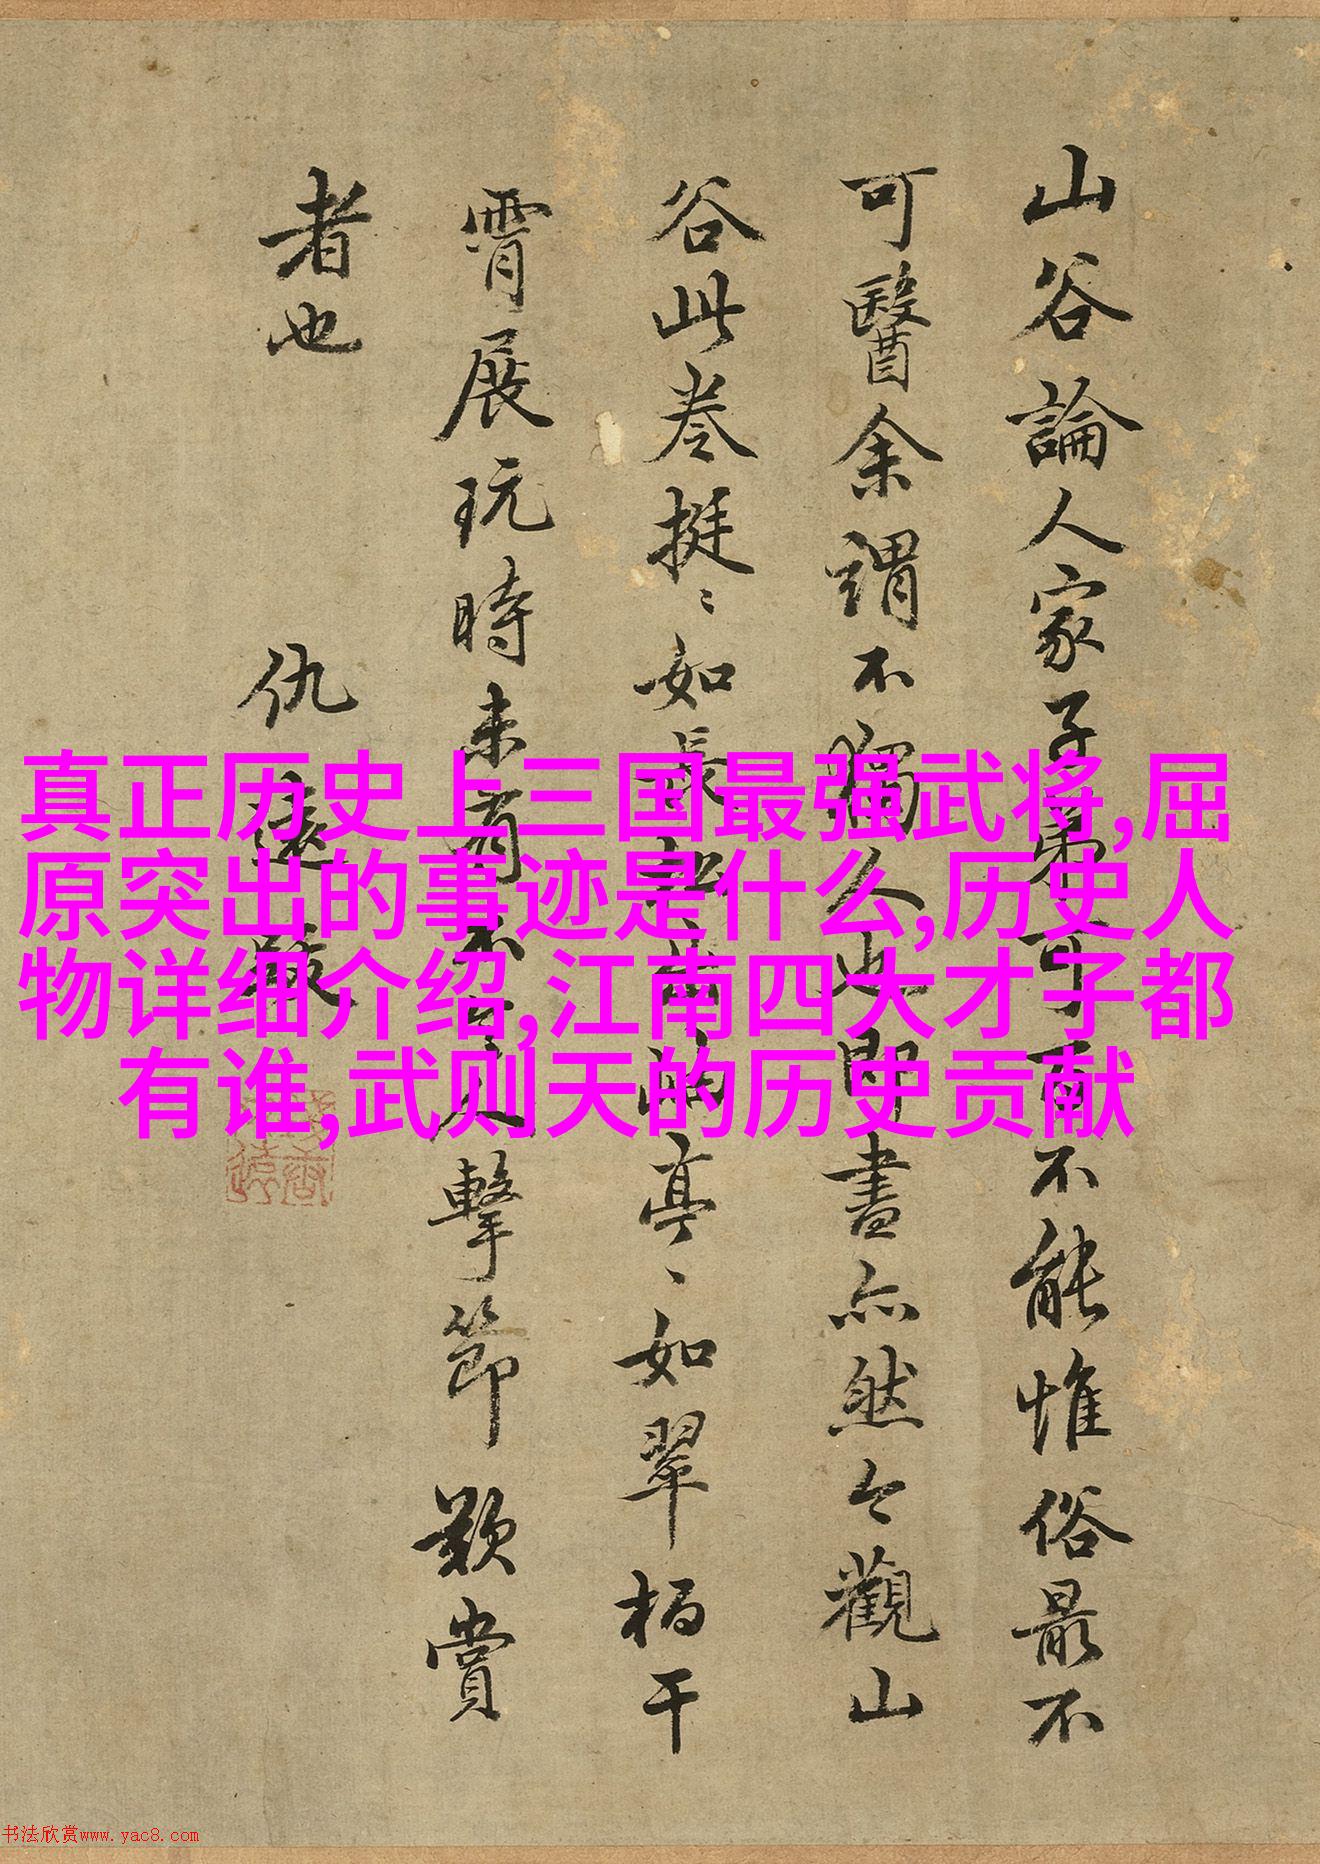 山谷論人家子弟可百不能惟俗最不
可醫余謂不獨人也即書亦然今觀山
谷此卷挺〻如長 亭〻如翠柏干
霄展玩時未有不令人擊節歎賞
者也
仇遠
真正历史上三国最强武将,屈
原突出的事迹是什么,历史人
物详细介绍,江南四大才子都
有谁,武则天的历史贡献
书法欣赏www.yac8.com